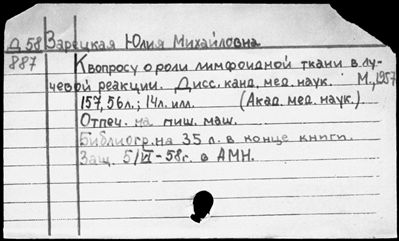 Д 58 Зарецкая Юлия Михайловна
887 К вопросу о роли лимфоидной ткани в лу-
чевой реакции. Дисс. канд. мед. наук. М., 1957
157, 56 л.; 14 л. илл. (Акад. мед. наук.).
Отпеч. на пиш. маш.
Библиогр. на 35 л. в конце книги.
Защ. 5/VI - 58 г. в АМН.